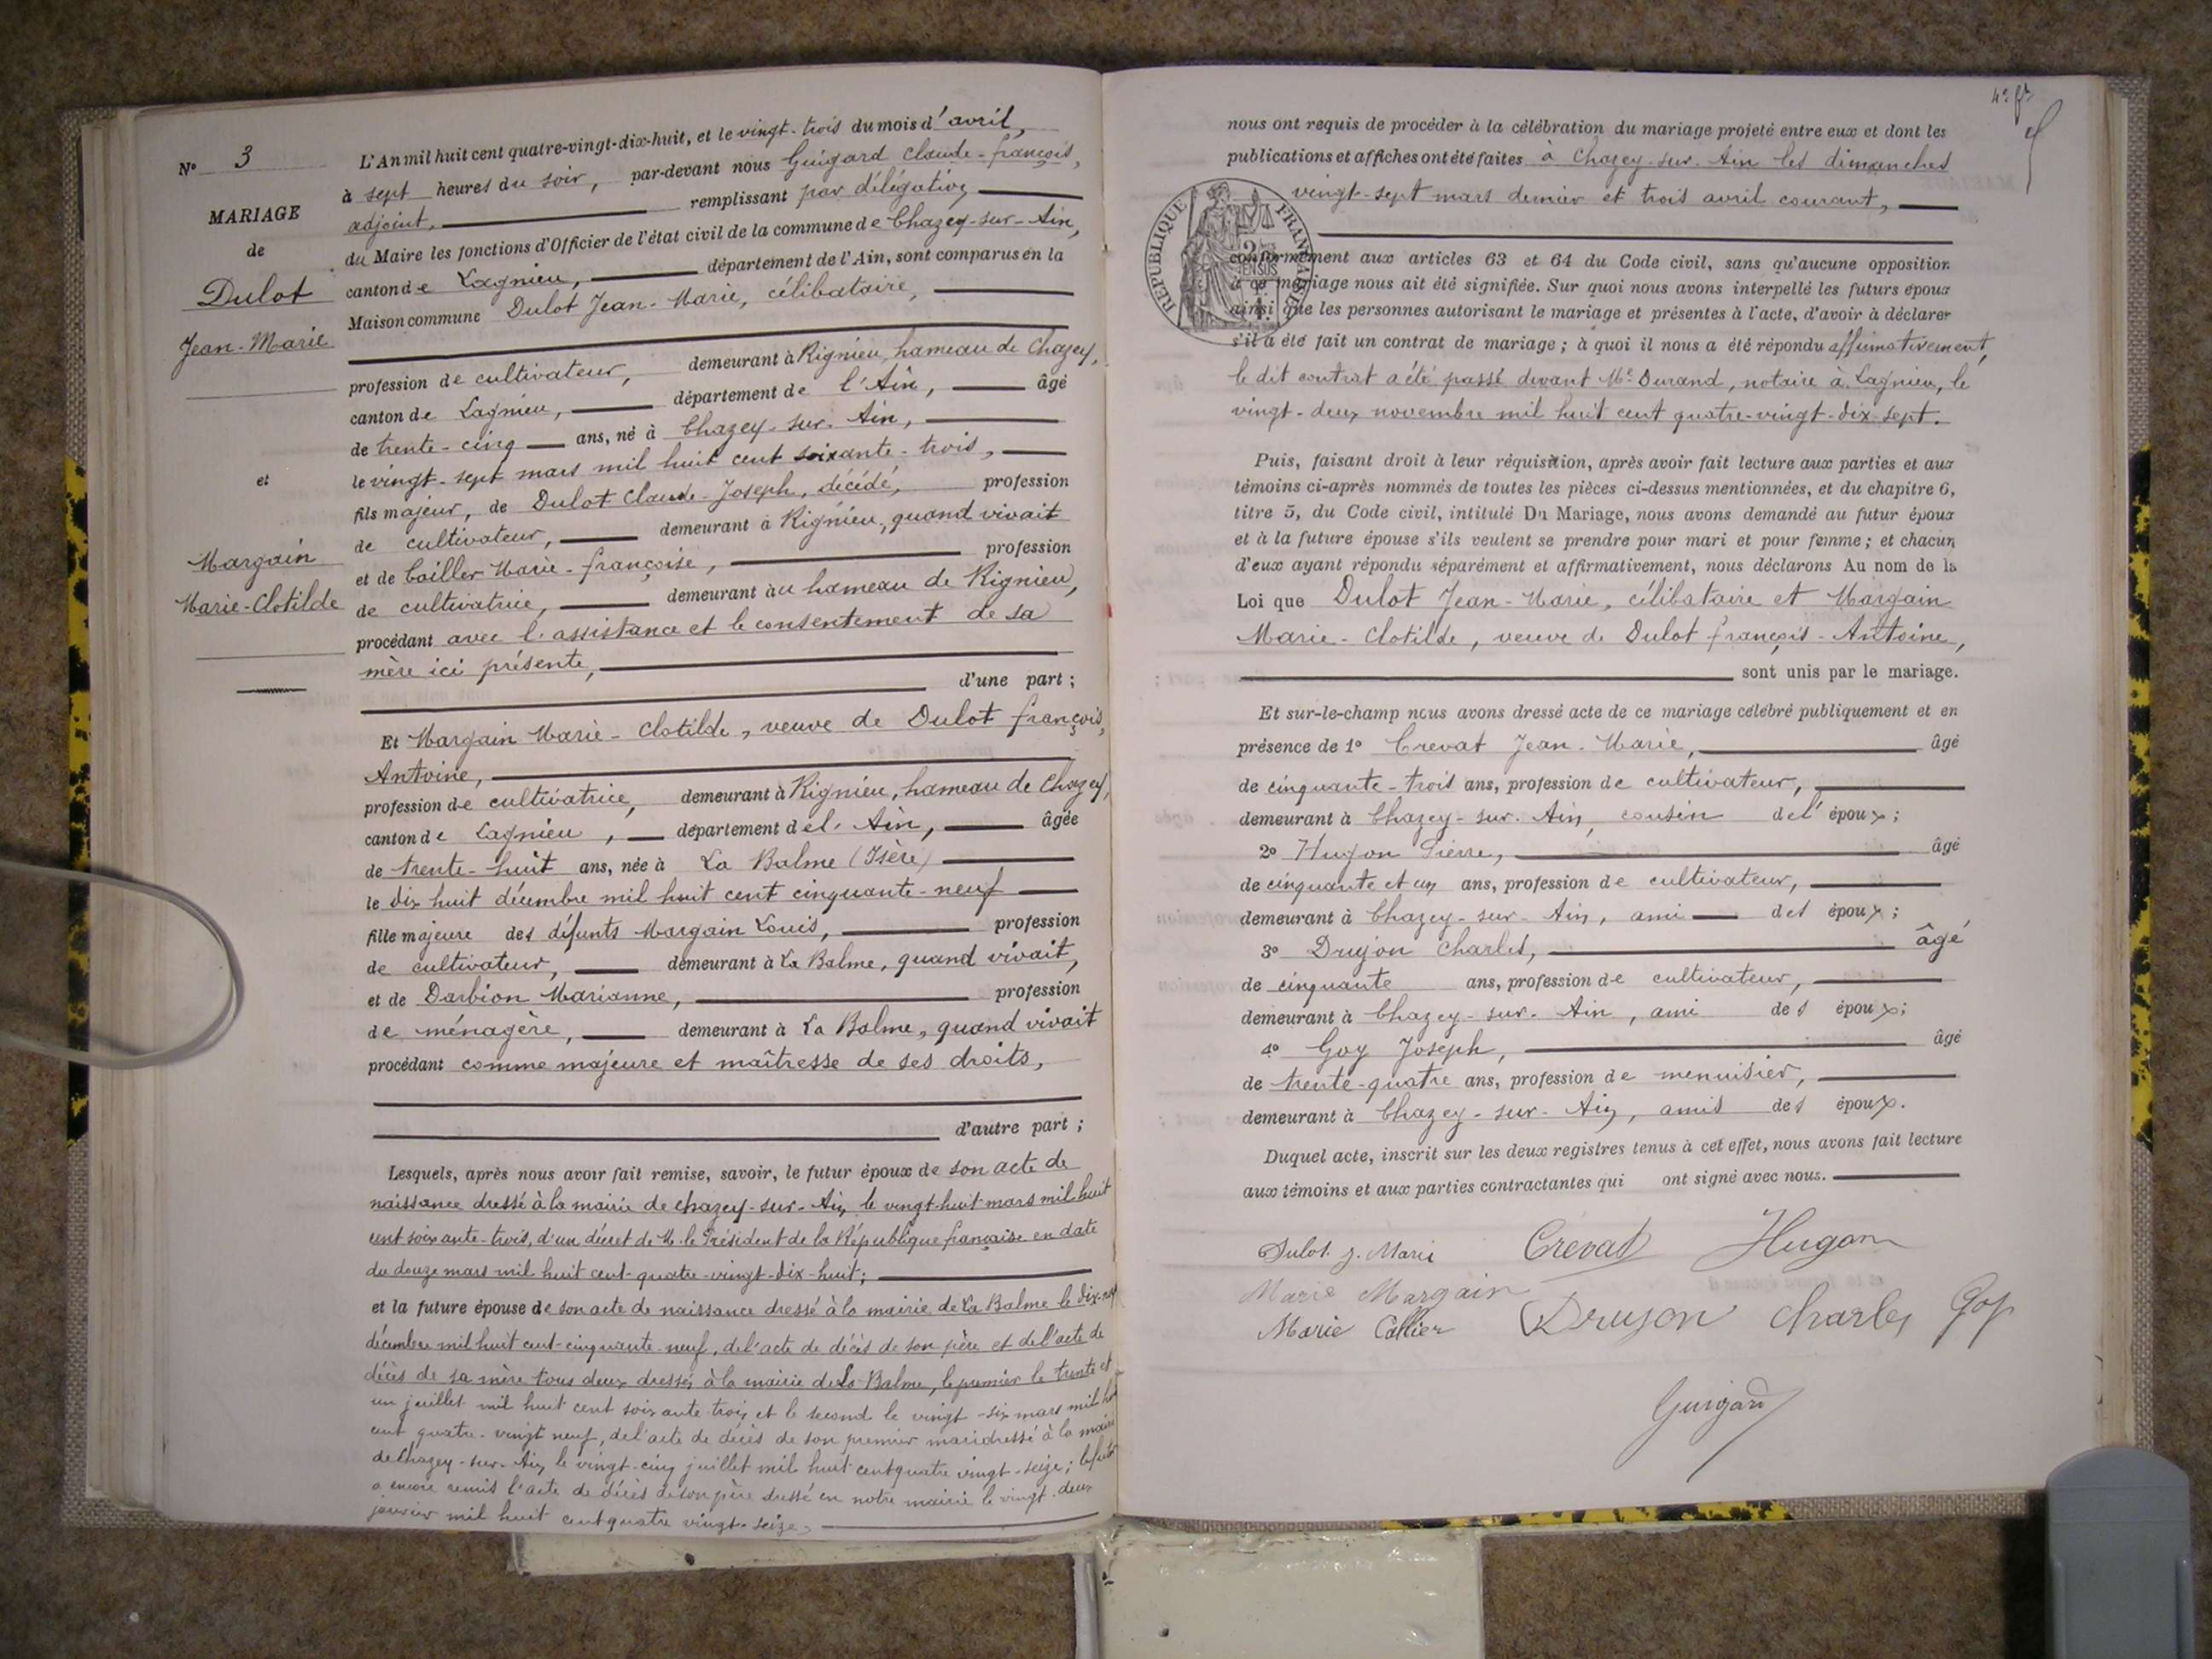 N° 3
MARIAGE
de
Dulot
Jean-Marie
et
Margain
Marie-Clotilde
L'An mil huit cent quatre-vingt-dix-huit, et le vingt-trois du mois d'avril,
à sept heures du soir, par-devant nous Guigard Claude-françois,
adjoint, remplissant par délégation
du Maire les fonctions d'Officier de l'état civil de la commune de Chazey-sur-Ain,
canton de Lagnieu, département de l'Ain, sont comparus en la
Maison commune Dulot Jean-Marie, célibataire,
profession de cultivateur, demeurant à Rignieu, hameau de Chazey,
canton de Lagnieu, département de l'Ain, âgé
de trente-cinq ans, né à Chazey-sur-Ain,
le vingt-sept mars mil huit cent soixante-trois,
fils majeur, de Dulot Claude-Joseph, décédé, profession
de cultivateur, demeurant à Rignieu, quand vivait
et de Cailler Marie-françoise, profession
de cultivatrice, demeurant au hameau de Rignieu,
procédant avec l'assistance et le consentement de sa
mère ici présente,
d'une part ;
Et Margain Marie-Clotilde, veuve de Dulot françois,
Antoine,
profession de cultivatrice, demeurant à Rignieu, hameau de Chazey,
canton de Lagnieu, département de l'Ain, âgée
de trente-huit ans, née à La Balme (Isère)
le dix huit décembre mil huit cent cinquante-neuf
fille majeure des défunts Margain Louis, profession
de cultivateur, demeurant à La Balme, quand vivait,
et de Darbion Marianne, profession
de ménagère, demeurant à La Balme, quand vivait
procédant comme majeure et maîtresse de ses droits,
d'autre part ;
Lesquels, après nous avoir fait remise, savoir, le futur époux de son acte de
naissance dressé à la mairie de chazey-sur-Ain, le vingt-huit mars mil huit
cent soixante-trois, d'un décret de M. le Président de la République française en date
du douze mars mil huit cent-quatre-vingt-dix-huit ;
et la future épouse de son acte de naissance dressé à la mairie de La Balme le dix-neuf
décembre mil huit cent-cinquante-neuf, de l'acte de décès de son père et de l'acte de
décès de sa mère tous deux dressés à la mairie de La Balme, le premier le trente et
un juillet mil huit cent soixante trois et le second le vingt-six mars mil huit
cent quatre-vingt neuf, de l'acte de décès de son premier mari dressé à la mairie
de Chazey-sur-Ain, le vingt-cinq juillet mil huit cent quatre vingt-seize ; le futur
a encore remis l'acte de décès de son père dressé en notre mairie le vingt-deux
janvier mil huit cent quatre vingt-seize,
nous ont requis de procéder à la célébration du mariage projeté entre eux et dont les
publications et affiches ont été faites à Chazey-sur-Ain les dimanches
vingt-sept mars dernier et trois avril courant,
RÉPUBLIQUE FRANÇAISE
conformément aux articles 63 et 64 du Code civil, sans qu'aucune opposition
à ce mariage nous ait été signifiée. Sur quoi nous avons interpellé les futurs époux
ainsi que les personnes autorisant le mariage et présentes à l'acte, d'avoir à déclarer
s'il a été fait un contrat de mariage ; à quoi il nous a été répondu affirmativement,
le dit contrat a été passé devant Me Durand, notaire à Lagnieu, le
vingt-deux novembre mil huit cent quatre-vingt-dix-sept.
Puis, faisant droit à leur réquisition, après avoir fait lecture aux parties et aux
témoins ci-après nommés de toutes les pièces ci-dessus mentionnées, et du chapitre 6,
titre 5, du Code civil, intitulé Du Mariage, nous avons demandé au futur époux
et à la future épouse s'ils veulent se prendre pour mari et pour femme ; et chacun
d'eux ayant répondu séparément et affirmativement, nous déclarons Au nom de la
Loi que Dulot Jean-Marie, célibataire et Margain
Marie-Clotilde, veuve de Dulot françois-Antoine,
sont unis par le mariage.
Et sur-le-champ nous avons dressé acte de ce mariage célébré publiquement et en
présence de 1° Crevat Jean-Marie, âgé
de cinquante-trois ans, profession de cultivateur,
demeurant à Chazey-sur-Ain, cousin de l'époux ;
2° Hugon Pierre, âgé
de cinquante et un ans, profession de cultivateur,
demeurant à Chazey-sur-Ain, ami des époux ;
3° Drujon Charles, âgé
de cinquante ans, profession de cultivateur,
demeurant à Chazey-sur-Ain, ami des époux ;
4° Goy Joseph, âgé
de trente-quatre ans, profession de menuisier,
demeurant à Chazey-sur-Ain, amis des époux.
Duquel acte, inscrit sur les deux registres tenus à cet effet, nous avons fait lecture
aux témoins et aux parties contractantes qui ont signé avec nous.
Dulot j. Marie Crevat Hugon
Marie Margain Drujon Charles Goy
Marie Callier
Guigard